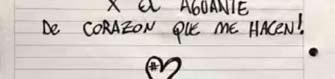 X EL AGUANTE
DE CORAZON QUE ME HACEN!